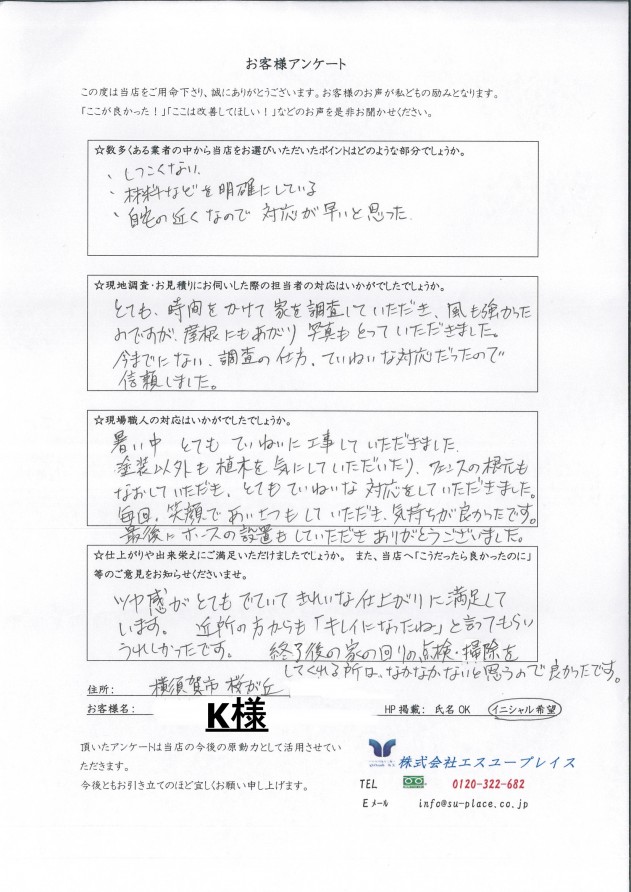 お客様アンケート
この度は当店をご用命下さり、誠にありがとうございます。お客様のお声が私どもの励みとなります。
「ここが良かった！」「ここは改善してほしい！」などのお声を是非お聞かせください。
☆数多くある業者の中から当店をお選びいただいたポイントはどのような部分でしょうか。
、しつこくない.
、材料などを明確にしている
、自宅の近くなので 対応が早いと思った.
☆現地調査・お見積りにお伺いした際の担当者の対応はいかがでしたでしょうか。
とても、時間をかけて家を調査していただき、風も強かった
のですが、屋根にもあがり 写真もとっていただきました。
今までにない、調査の仕方、ていねいな対応だったので
信頼しました。
☆現場職人の対応はいかがでしたでしょうか。
暑い中 とても ていねいに工事していただきました.
塗装以外も植木を気にしていただいたり、フェンスの根元も
なおしていただき、とてもていねいな 対応をしていただきました。
毎回、笑顔であいさつもしていただき、気持ちが良かったです。
最後にホースの設置もしていただきありがとうございました。
☆仕上がりや出来栄えにご満足いただけましたでしょうか。 また、当店へ「こうだったら良かったのに」
等のご意見をお知らせくださいませ。
ツヤ感がとてもでていてきれいな仕上がりに満足して
います。 近所の方からも「キレイになったね」と言ってもらい
うれしかったです。 終了後の家の回りの点検・掃除を
してくれる所は、なかなかないと思うので良かったです。
住所： 横須賀市 桜が丘
お客様名： K様 HP掲載： 氏名OK イニシャル希望
頂いたアンケートは当店の今後の原動力として活用させてい
ただきます。
今後ともお引き立てのほど宜しくお願い申し上げます。
株式会社エスユープレイス
TEL 0120-322-682
Eメール info@su-place.co.jp